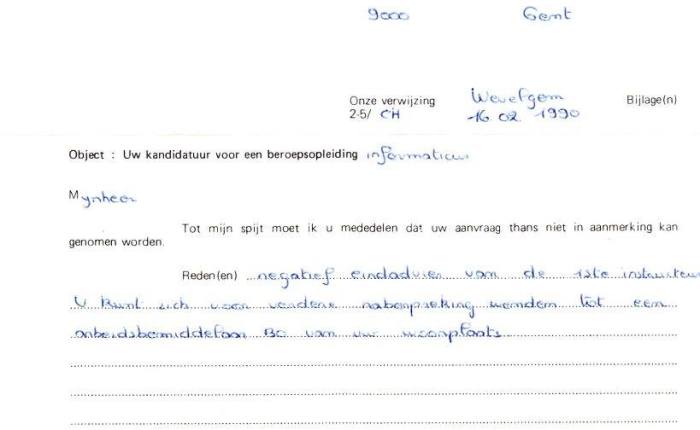 9000 Gent
Onze verwijzing Wevelgem Bijlage(n)
2.5/ CH 16 02 1990
Object : Uw kandidatuur voor een beroepsopleiding informaticus
Mynheer
Tot mijn spijt moet ik u mededelen dat uw aanvraag thans niet in aanmerking kan
genomen worden.
Reden(en) negatief eindadvies van de 1ste instructeu
U kunt zich voor verdere nabespreking wenden tot een
arbeidsbemiddelaar BC van uw woonplaats